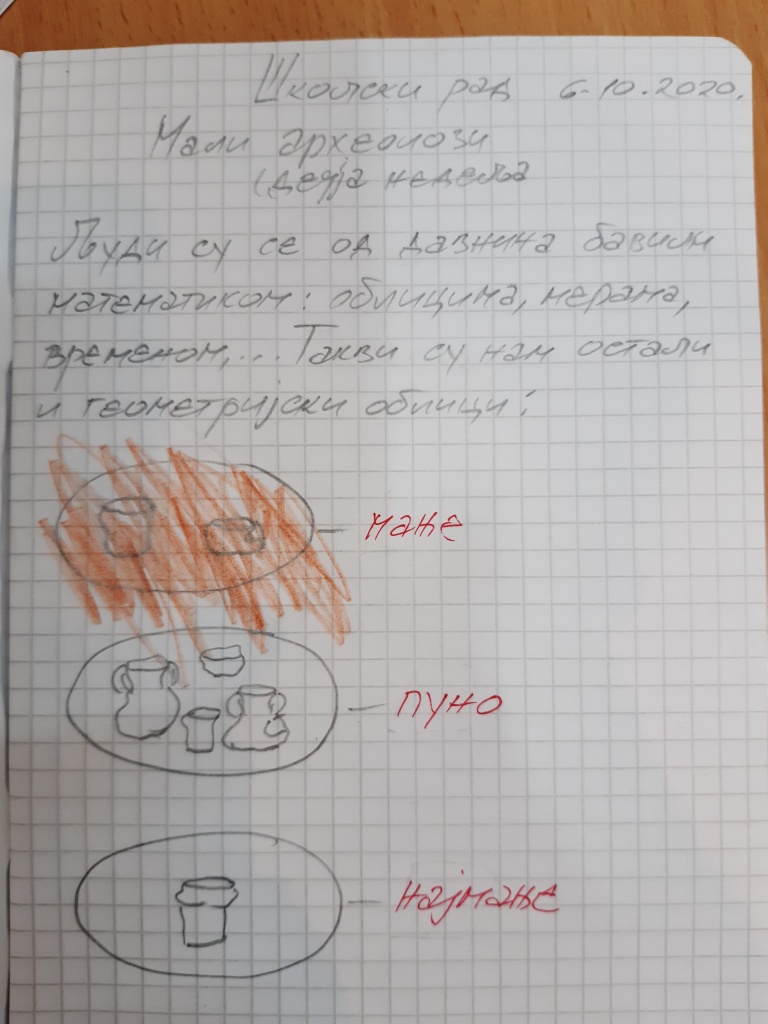 Школски рад 6.10.2020.
Мали археолози
(дечја недеља
Људи су се од давнина бавили
математиком: облицима, мерама,
временом,... Такви су нам остали
и геометријски облици:
мање
пуно
најмање